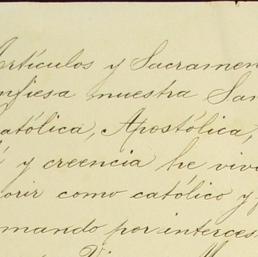 Artículos y Sacramen
nfiesa nuestra San
atólica, Apostólica,
y creencia he viv
orir como católico y f
mando por interces